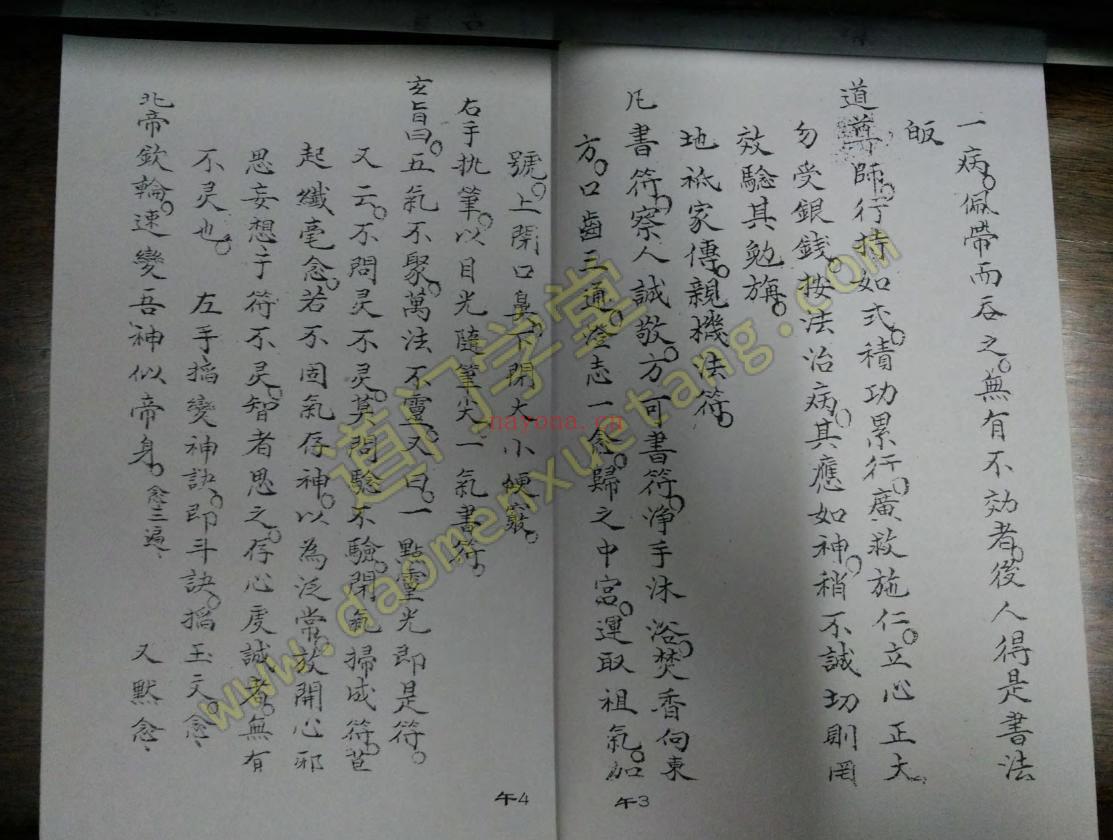 一病。佩帶而吞之。無有不効者。後人得是書法
皈
道尊師。行持如式。積功累行。廣救施仁。立心正大。
勿受銀錢。按法治病。其應如神。稍不誠切則罔
效驗其勉旃。
地祇家傳。親機法符。
凡書符。察人誠敬。方可書符。净手沐浴。焚香向東
方。口齒三通。澄志一念。歸之中宮。運取祖氣。加
午3
號。上閉口鼻。下閉大小便竅。
右手执筆。以目光隨筆尖一氣書符。
玄旨曰。五氣不聚。萬法不靈。又曰。一點靈光即是符。
又云。不問灵不灵。莫問驗不驗。閉氣掃成符。
起纖毫念。若不固氣存神。以為泛常。放開心邪
思妄想于符不灵。智者思之。存心虔誠者。無有
不灵也。 左手搯變神訣。即斗訣。搯玉文。念
北帝欽輪。速變吾神似帝身。念三遍 又默念
午4
道门学堂
www.daomenxuetang.com
nayona.cn